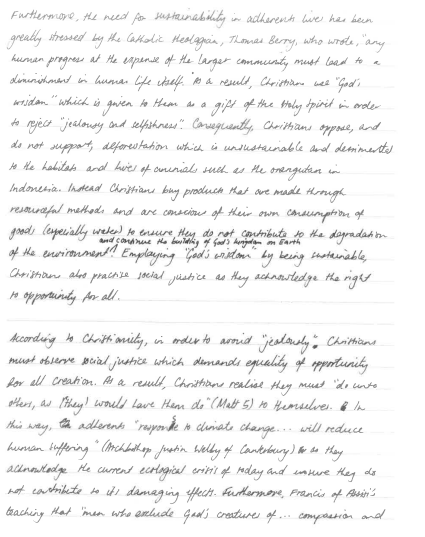 Furthermore, the need for sustainability in adherents lives has been
greatly stressed by the Catholic theologian, Thomas Berry, who wrote, "any
human progress at the expense of the larger community must lead to a
diminishment in human life itself." As a result, Christians use "God's
wisdom" which is given to them as a gift of the Holy Spirit in order
to reject "jealousy and selfishness". Consequently, Christians oppose, and
do not support, deforestation which is unsustainable and detrimental
to the habitats and lives of animals such as the orangutan in
Indonesia. Instead Christians buy products that are made through
resourceful methods and are conscious of their own consumption of
goods (especially water) to ensure they do not contribute to the degradation
and continue the building of God's kingdom on Earth
of the environment. Employing "God's wisdom" by being sustainable,
Christians also practise social justice as they acknowledge the right
to opportunity for all.
According to Christianity, in order to avoid "jealously". Christians
must observe social justice which demands equality of opportunity
for all creation. As a result, Christians realise they must "do unto
others, as [they] would have them do" (Matt 5) to themselves. In
this way, adherents "response to climate change... will reduce
human suffering" (Archbishop Justin Welby of Canterbury) as they
acknowledge the current ecological crisis of today and ensure they do
not contribute to its damaging effects. Furthermore, Francis of Assisi's
teaching that "men who exclude God's creatures of... compassion and